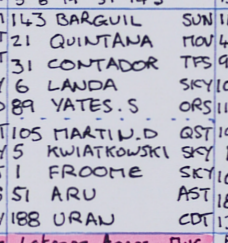 143 BARGUIL SUN
21 QUINTANA MOV
31 CONTADOR TFS
6 LANDA SKY
89 YATES.S ORS
105 MARTIN.D QST
5 KWIATKOWSKI SKY
1 FROOME SKY
51 ARU AST
188 URAN CDT